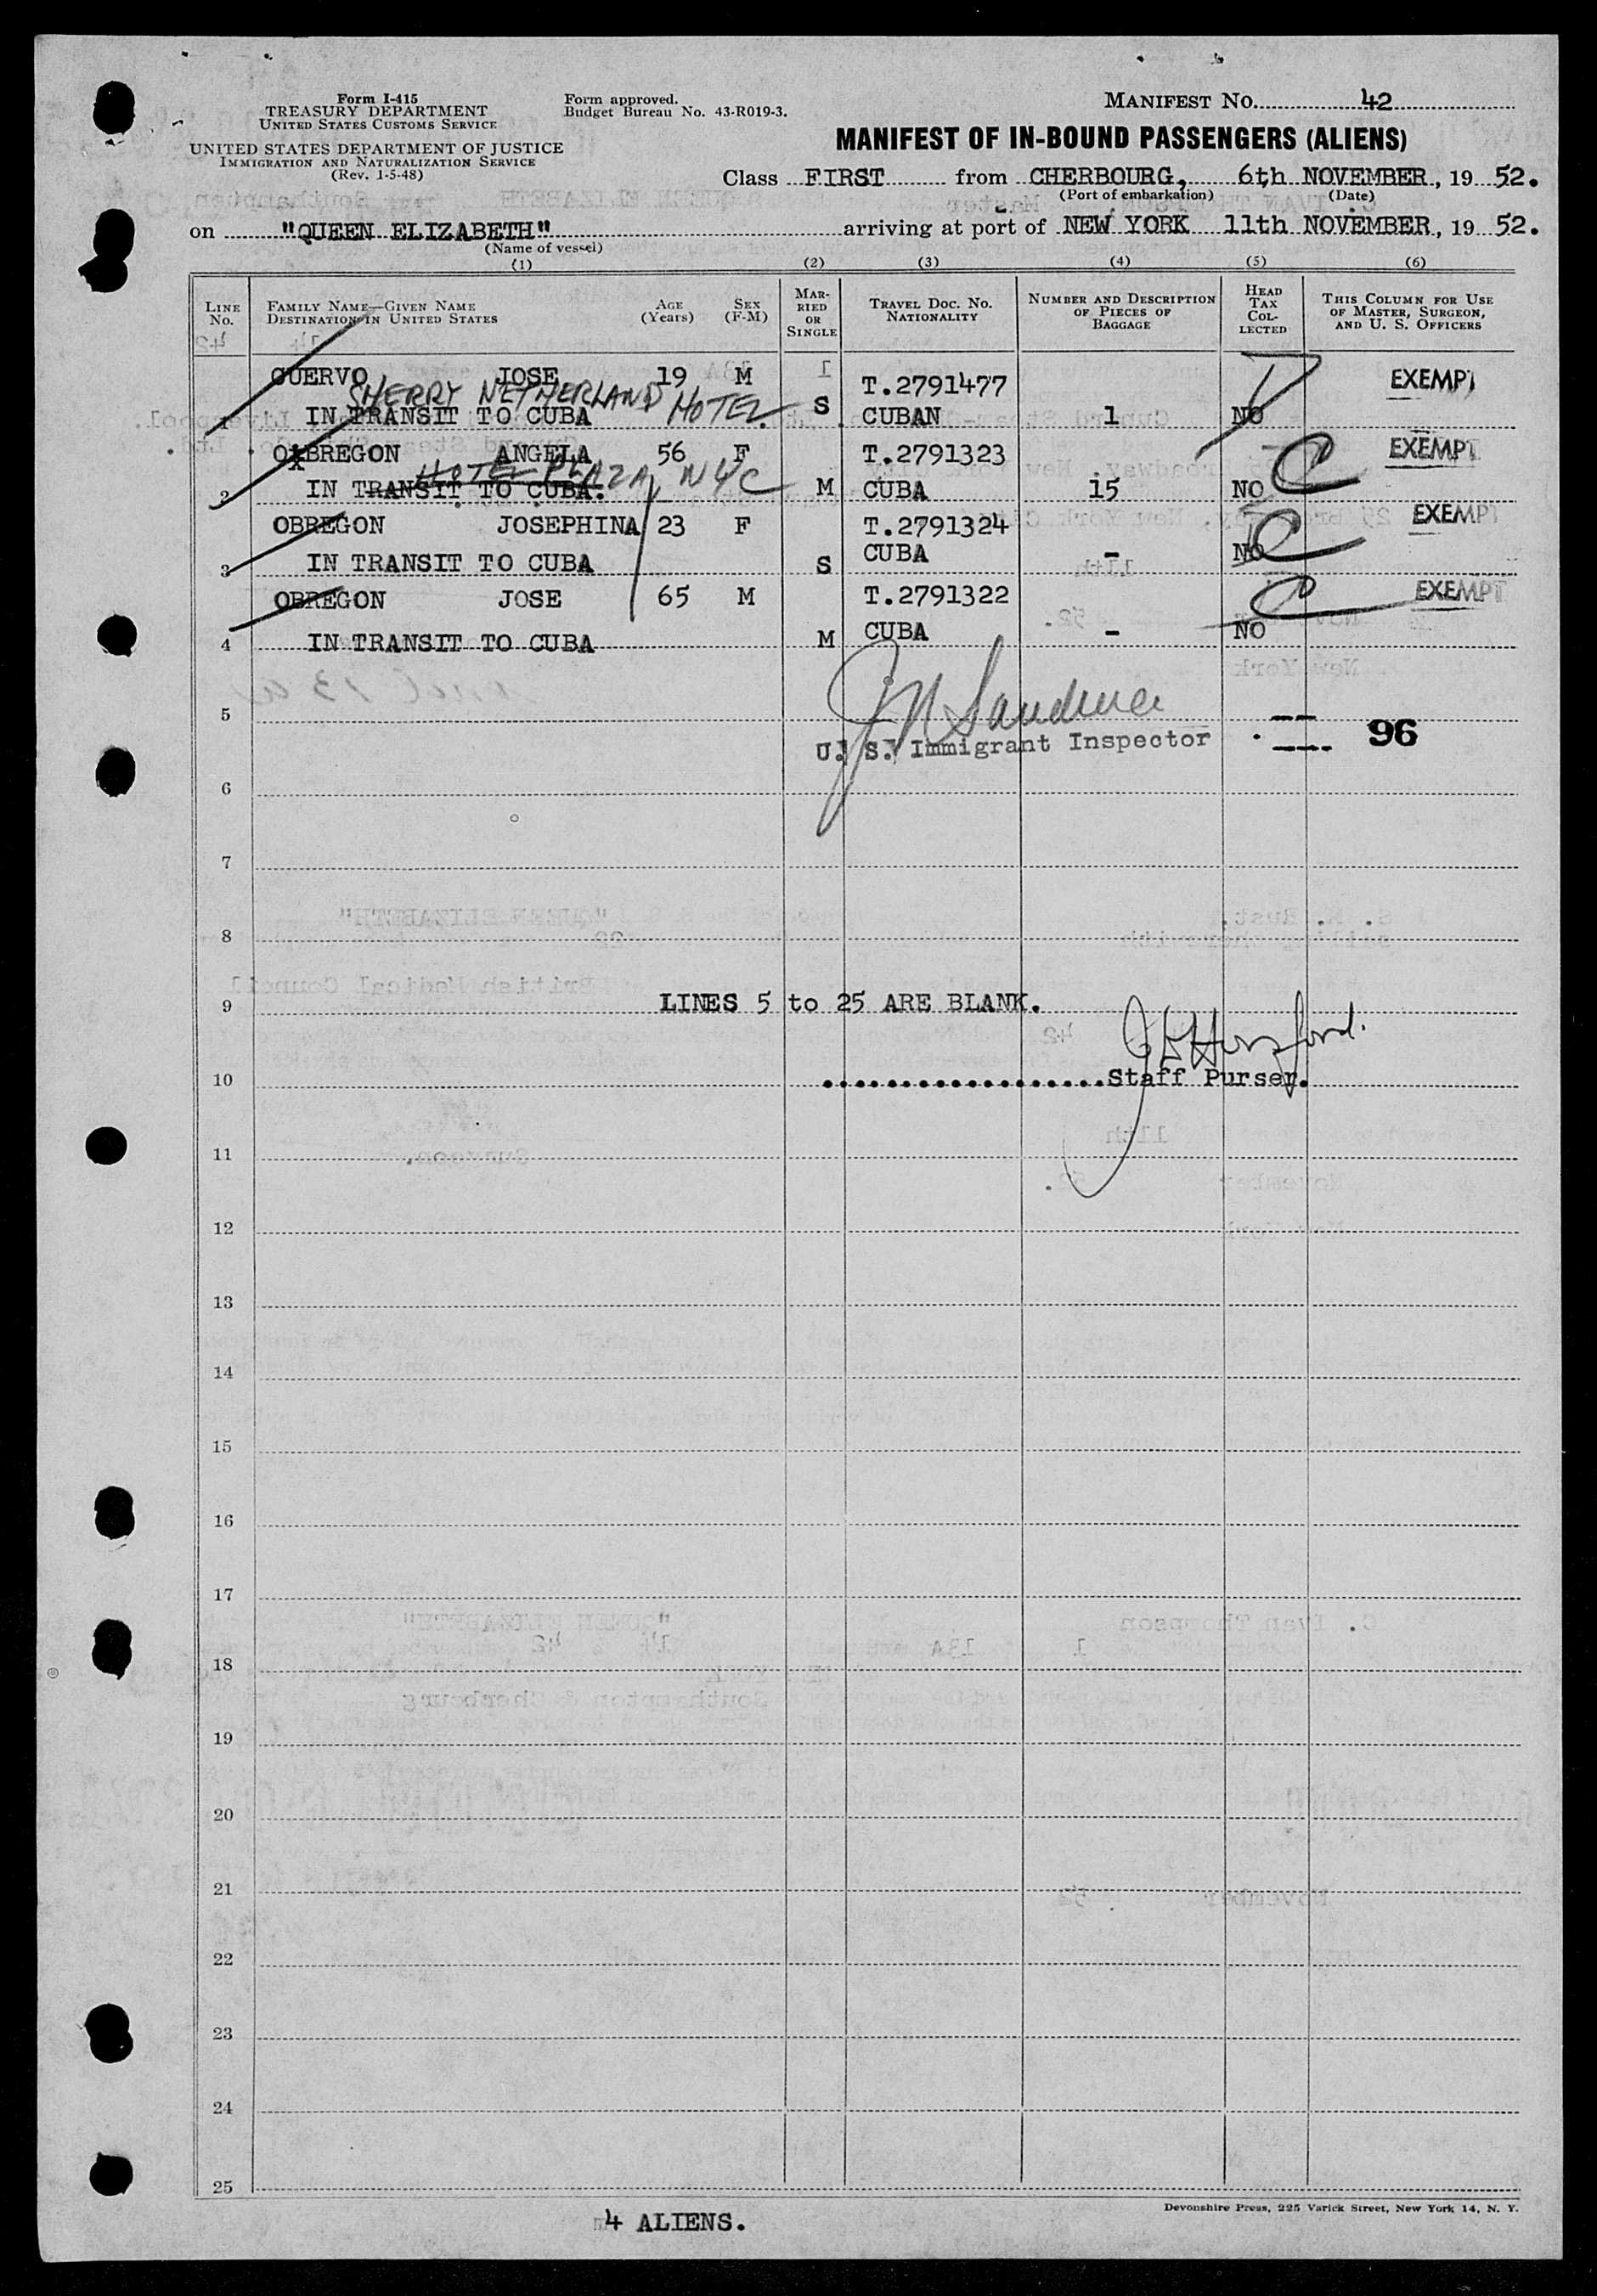 Form I-415
TREASURY DEPARTMENT
UNITED STATES CUSTOMS SERVICE
UNITED STATES DEPARTMENT OF JUSTICE
IMMIGRATION AND NATURALIZATION SERVICE
(Rev. 1-5-48)
Form approved.
Budget Bureau No. 43-R019-3.
MANIFEST NO. 42
MANIFEST OF IN-BOUND PASSENGERS (ALIENS)
Class FIRST from CHERBOURG, 6th NOVEMBER, 19 52.
(Port of embarkation) (Date)
on "QUEEN ELIZABETH" arriving at port of NEW YORK 11th NOVEMBER, 19 52.
(Name of vessel)
(1) (2) (3) (4) (5) (6)
LINE NO. FAMILY NAME—GIVEN NAME DESTINATION IN UNITED STATES AGE (Years) SEX (F-M) MARRIED OR SINGLE TRAVEL DOC. NO. NATIONALITY NUMBER AND DESCRIPTION OF PIECES OF BAGGAGE HEAD TAX COLLECTED THIS COLUMN FOR USE OF MASTER, SURGEON, AND U. S. OFFICERS
CUERVO JOSE 19 M T.2791477 EXEMPT
SHERRY NETHERLAND HOTEL
1 IN TRANSIT TO CUBA S CUBAN 1 NO
OXBREGON ANGELA 56 F T.2791323 EXEMPT
HOTEL PLAZA, NYC
2 IN TRANSIT TO CUBA. M CUBA 15 NO
OBREGON JOSEPHINA 23 F T.2791324 EXEMPT
3 IN TRANSIT TO CUBA S CUBA - NO
OBREGON JOSE 65 M T.2791322 EXEMPT
4 IN TRANSIT TO CUBA M CUBA - NO
5
U. S. Immigrant Inspector 96
6
7
8
9 LINES 5 to 25 ARE BLANK.
10 Staff Purser.
11
12
13
14
15
16
17
18
19
20
21
22
23
24
25
Devonshire Press, 225 Varick Street, New York 14, N. Y.
4 ALIENS.